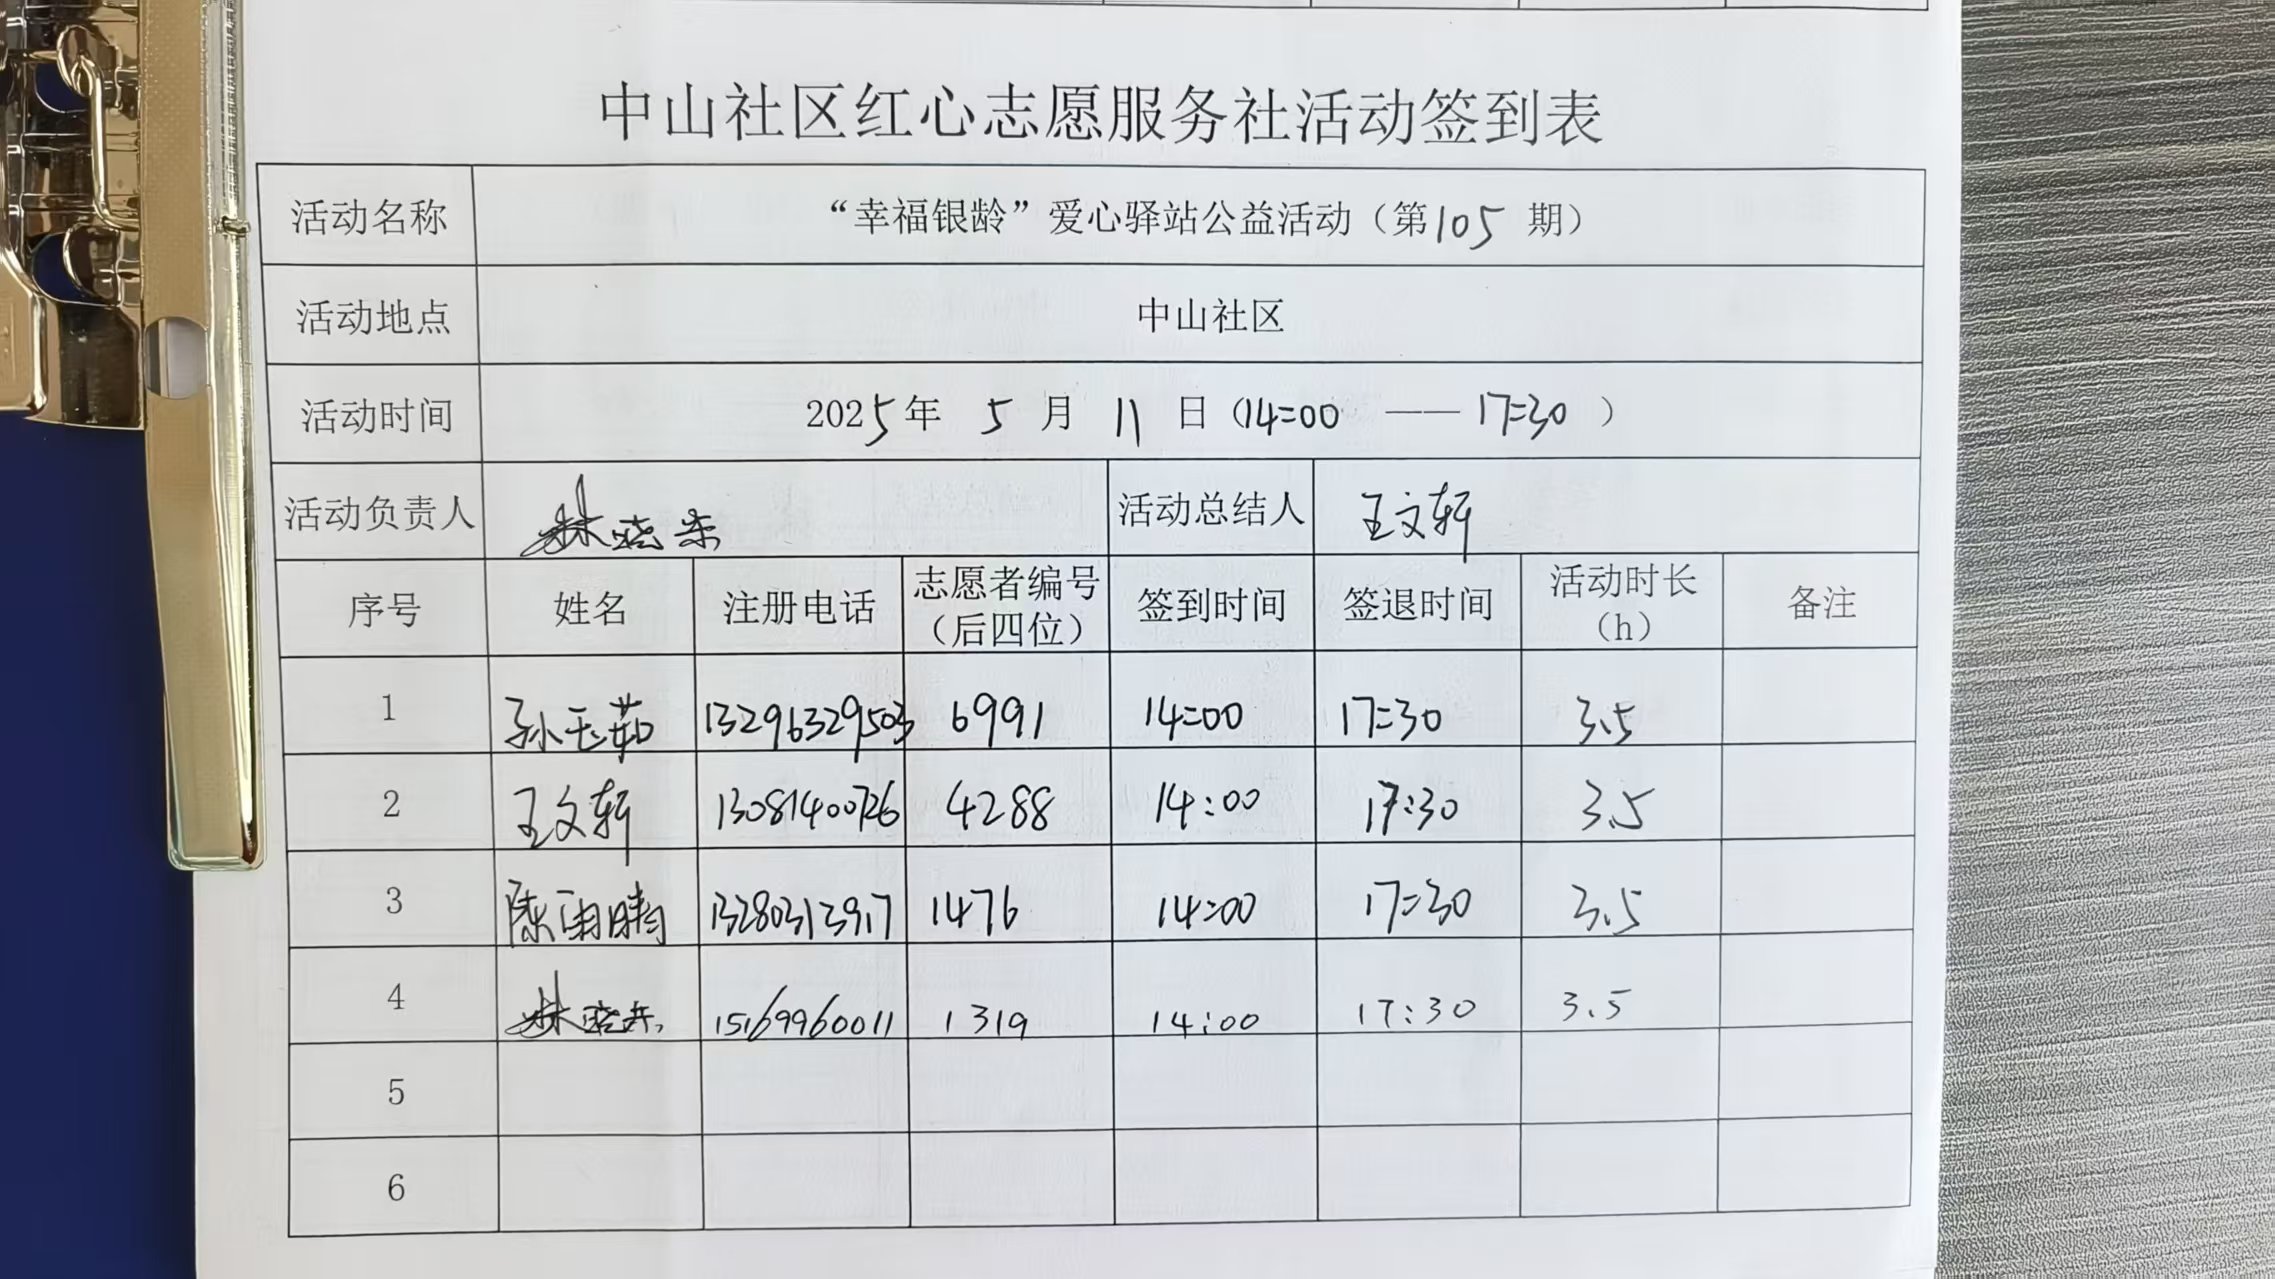 中山社区红心志愿服务社活动签到表
活动名称 “幸福银龄”爱心驿站公益活动（第105期）
活动地点 中山社区
活动时间 2025年 5 月 11 日（14=00 —— 17=30 ）
活动负责人 林晓东 活动总结人 王文轩
序号 姓名 注册电话 志愿者编号（后四位） 签到时间 签退时间 活动时长（h） 备注
1 孙玉茹 13296329503 6991 14=00 17=30 3.5
2 王文轩 13081400726 4288 14:00 17:30 3.5
3 陈雨晴 13280313917 1476 14=00 17=30 3.5
4 林晓东 15169960011 1319 14:00 17:30 3.5
5
6